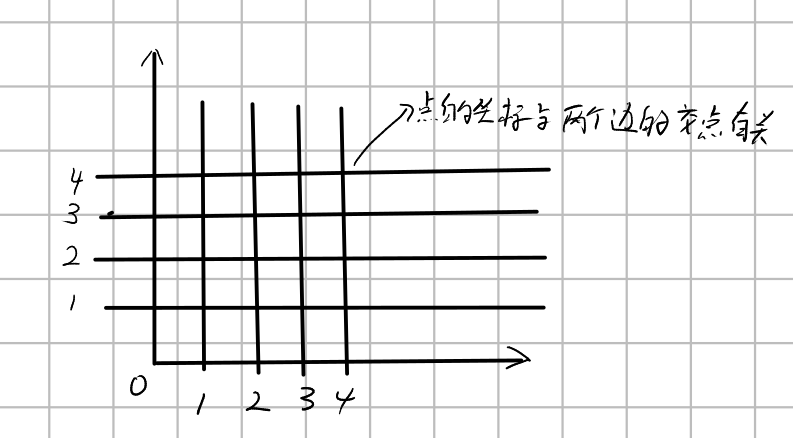 点的坐标与两个边的交点有关
4
3
2
1
0
1 2 3 4